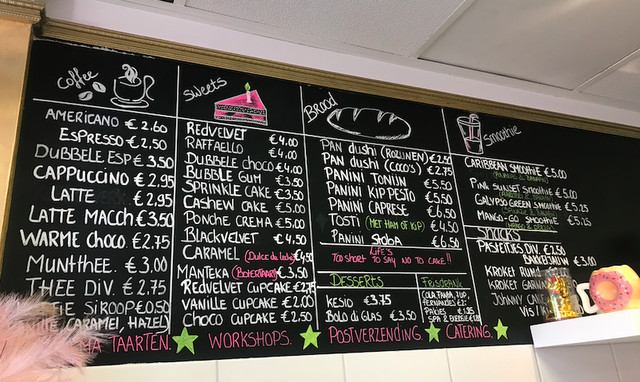 Coffee
AMERICANO €2.60
ESPRESSO €2,50
DUBBELE ESP €3.50
CAPPUCCINO €2,95
LATTE €2,95
LATTE MACCH €3,50
WARME CHOCO. €2.75
MUNTTHEE. €3.00
THEE DIV. €2.75
SIROOP €0,50
CARAMEL, HAZEL
Sweets
REDVELVET €4,00
RAFFAELLO €4,00
DUBBELE CHOCO €4,00
BUBBLE GUM €3,50
SPRINKLE CAKE €3,50
CASHEW CAKE €5,00
PONCHE CREMA €5.00
BLACKVELVET €4,50
CARAMEL (Dulce de leche) €4,50
MANTEKA (BOTERTAART) €3,50
REDVELVET CUPCAKE €2,75
VANILLE CUPCAKE €2,00
CHOCO CUPCAKE €2,50
Brood
PAN dushi (ROZIJNEN) €2,50
PAN dushi (COCO'S) €2,75
PANINI TONIJN €5,50
PANINI KIP PESTO €5,50
PANINI CAPRESE €6,50
TOSTI (MET HAM OF KIP) €4,50
PANINI SKOBA €6,50
LIFE'S
Too short TO SAY NO TO CAKE!!
DESSERTS
KESIO €3.75
BOLO di GLAS €3,50
FRISDRANK
COLA, FANTA, 7UP,
FERNANDES €2.
SPA
Smoothie
CARIBBEAN SMOOTHIE €5.00
PINK SUNSET SMOOTHIE €5.00
GALYPSO GREEN SMOOTHIE €5.25
MANGO-GO SMOOTHIE €5.75
SNACKS
PASTEITJES DIV. €2,50
BAKKELJAUW €3.00
KROKET
KROKET
JOHNNY CAKE
TAARTEN. WORKSHOPS. POSTVERZENDING. CATERING.